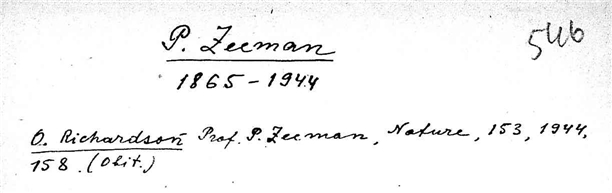 P. Zeeman
546
1865-1944
O. Richardson Prof. P. Zeeman, Nature, 153, 1944,
158. (Obit.)